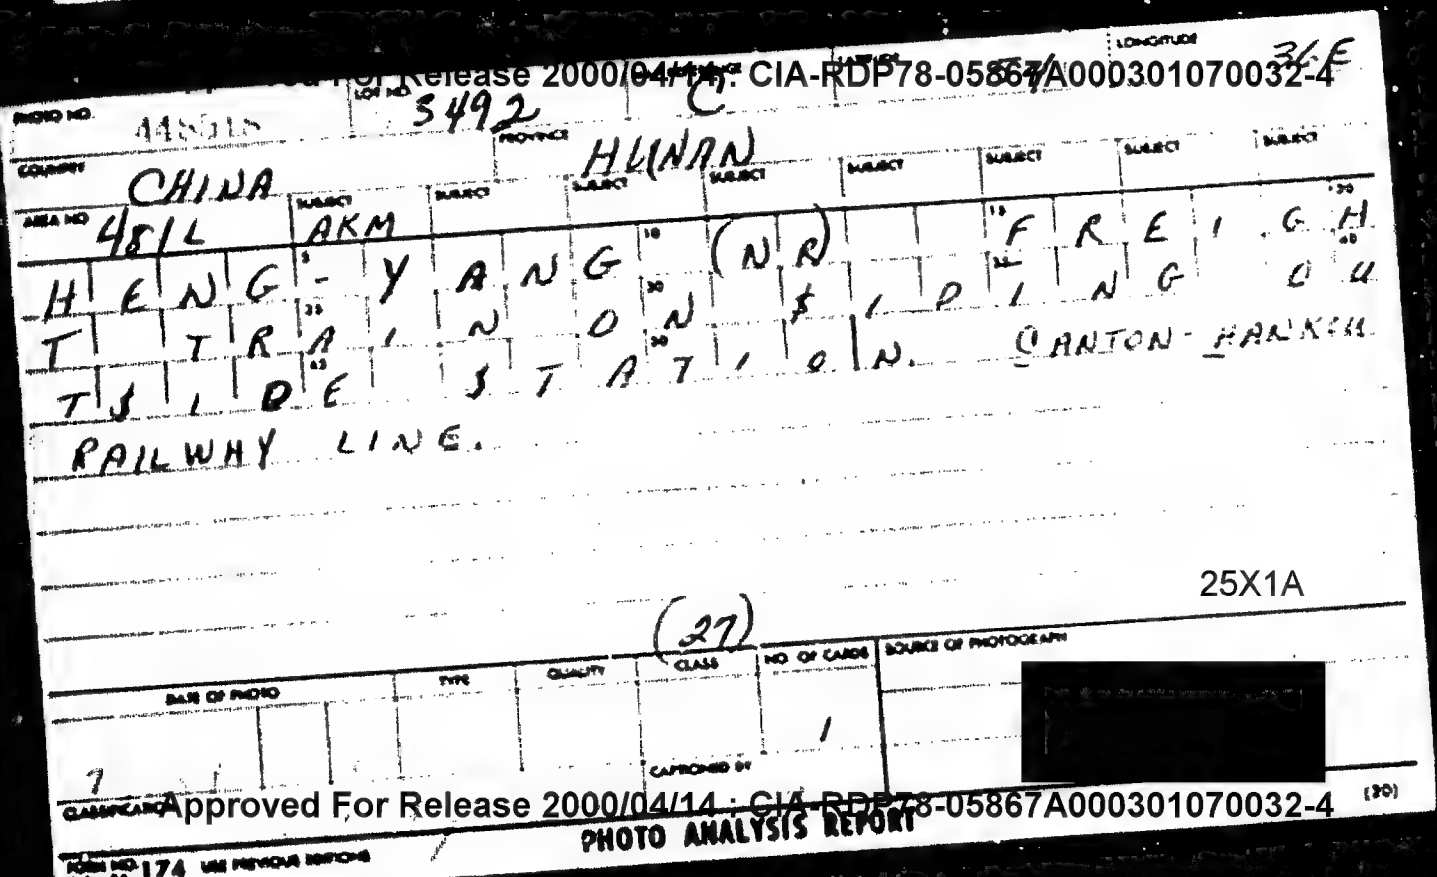 LONGITUDE
36 E
Approved For Release 2000/04/14 : CIA-RDP78-05867A000301070032-4
PHOTO NO.
LOT NO.
3492
C
COUNTRY
CHINA
PROVINCE
HUNAN
AREA NO
481L
SUBJECT
AKM
SUBJECT SUBJECT SUBJECT SUBJECT SUBJECT SUBJECT SUBJECT
HENG-YANG (NR) FREIGH
T TRAIN ON SIDING OU
TSIDE STATION. CANTON-HANKOW
RAILWAY LINE.
25X1A
(27)
DATE OF PHOTO TYPE QUALITY CLASS NO. OF CARDS SOURCE OF PHOTOGRAPH
1
CAPTIONED BY
Approved For Release 2000/04/14 : CIA-RDP78-05867A000301070032-4
(30)
PHOTO ANALYSIS REPORT
FORM NO. 174 USE PREVIOUS EDITIONS